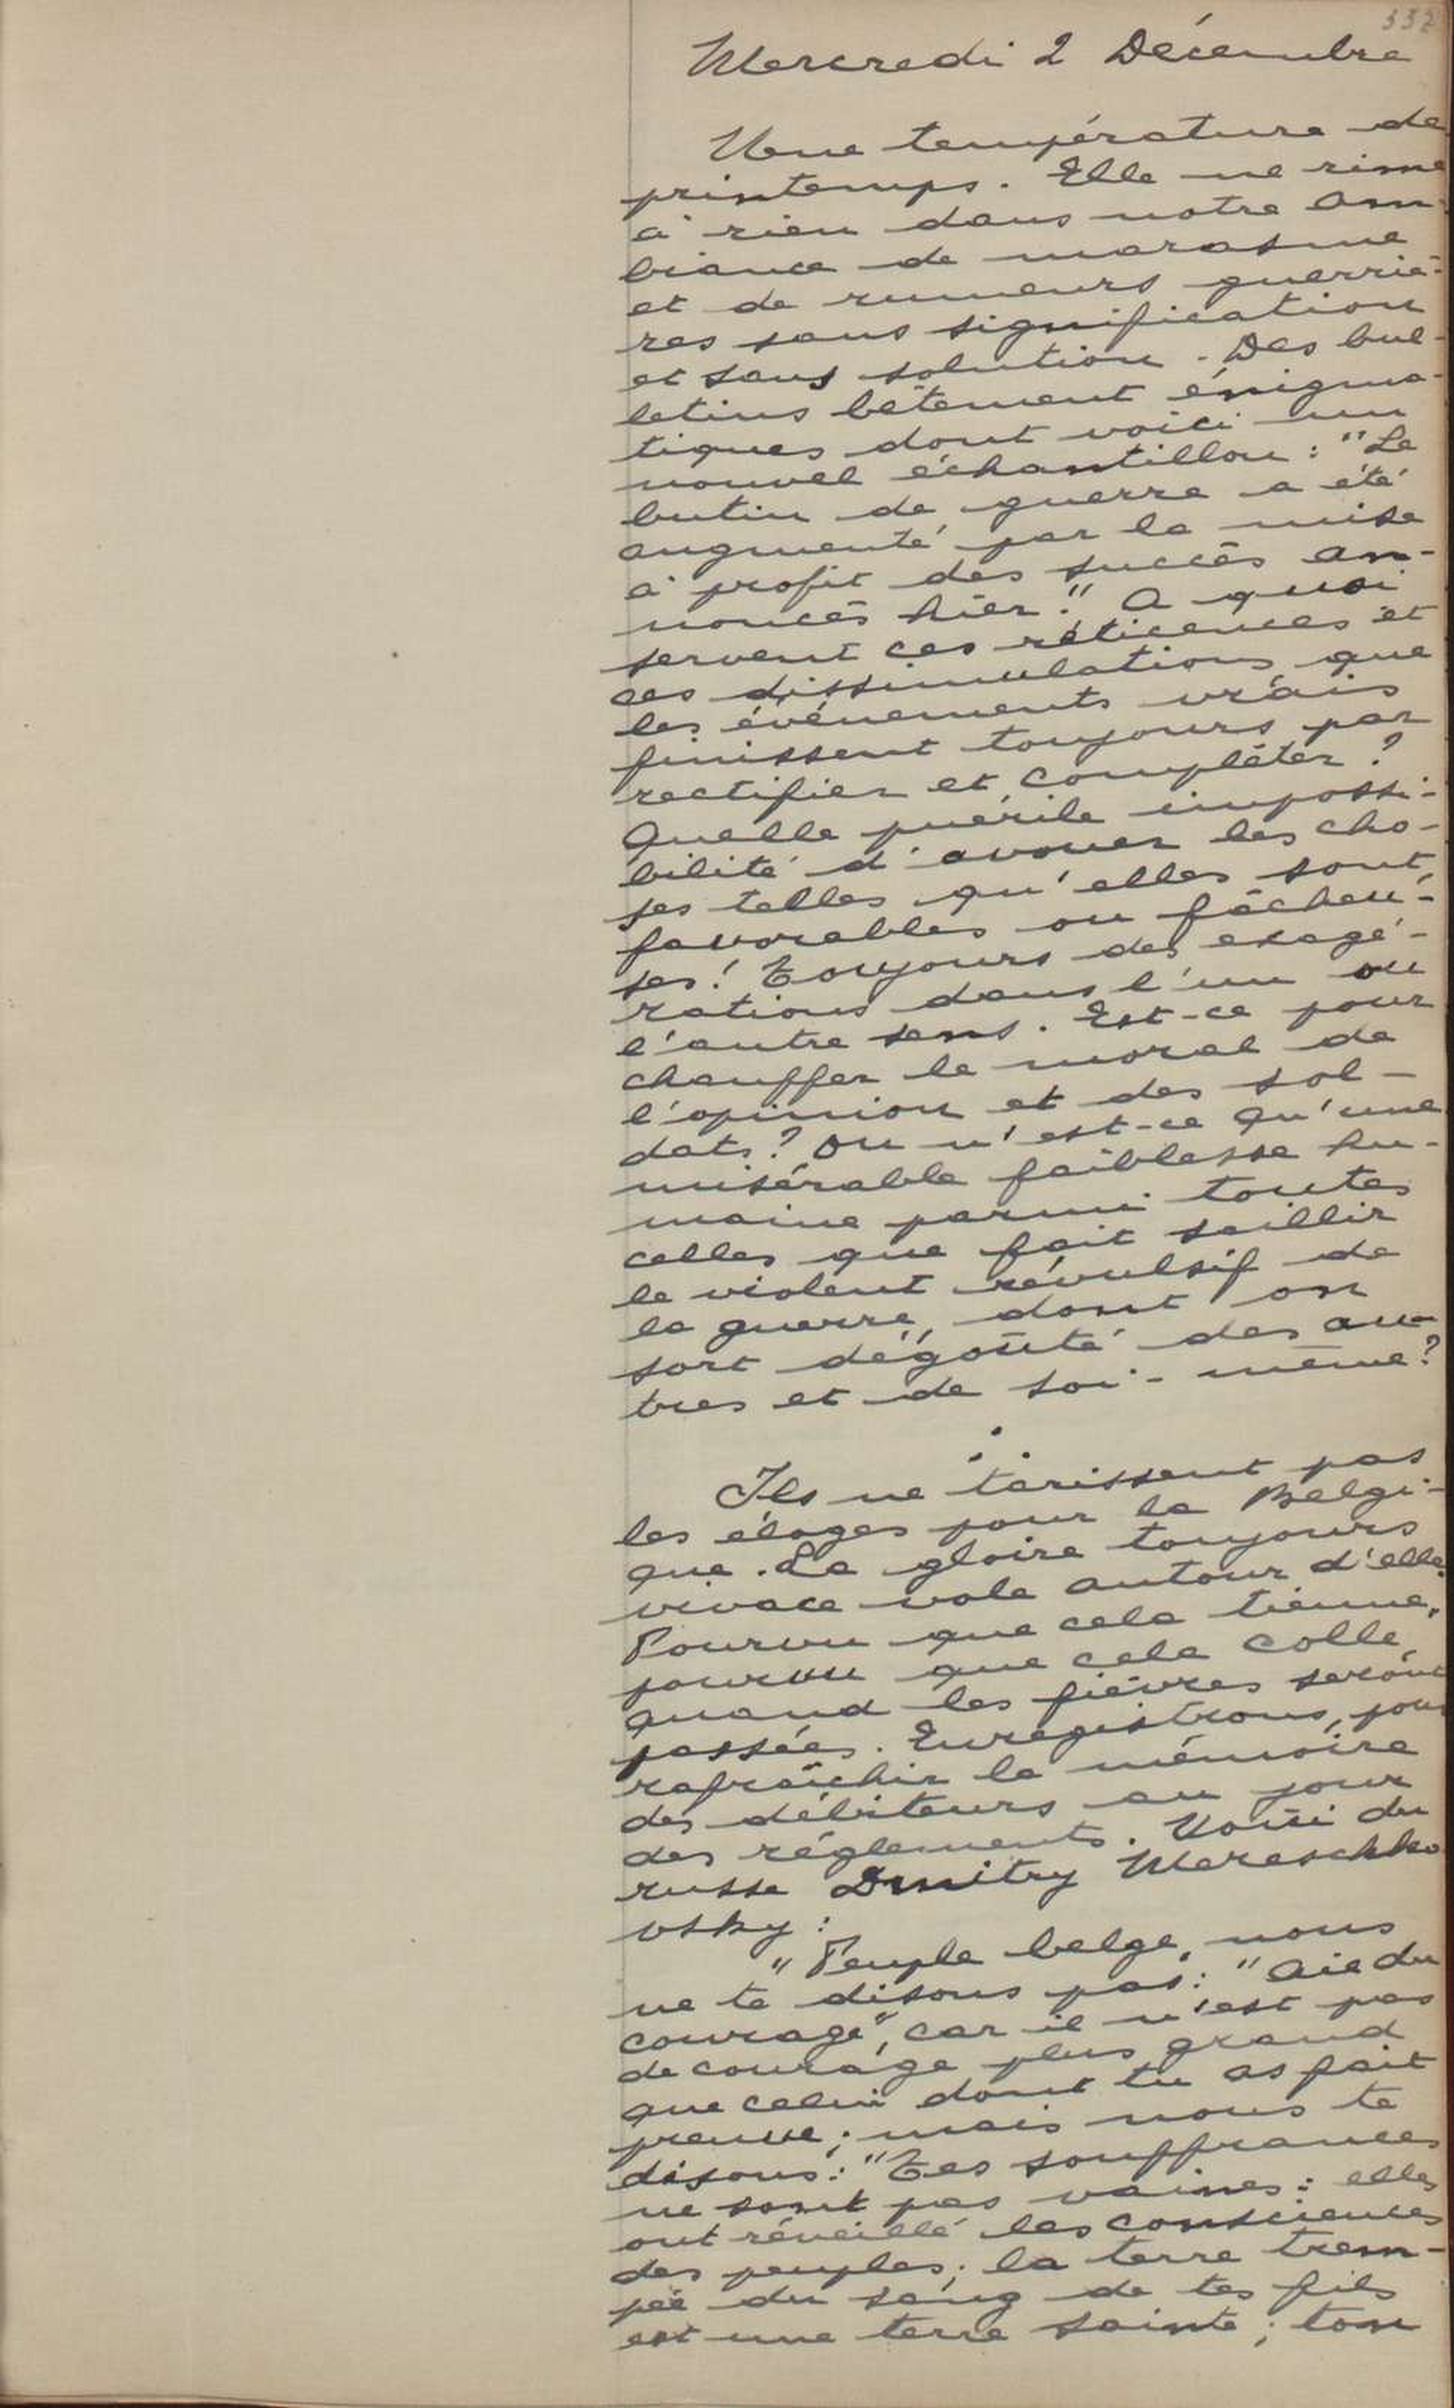 332
Mercredi 2 Décembre
Une température de
printemps. Elle ne rime
à rien dans notre am-
biance de marasme
et de rumeurs guerriè-
res sans signification
et sans solution. Des bul-
letins bêtement énigma-
tiques dont voici un
nouvel échantillon : "Le
butin de guerre a été
augmenté par la mise
à profit des succès an-
noncés hier." A quoi
servent ces réticences et
ces dissimulations que
les événements vrais
finissent toujours par
rectifier et compléter ?
Quelle puérile impossi-
bilité d'avouer les cho-
ses telles qu'elles sont,
favorables ou fâcheu-
ses ! Toujours des exagé-
rations dans l'un ou
l'autre sens. Est-ce pour
chauffer le moral de
l'opinion et des sol-
dats ? Ou n'est-ce qu'une
misérable faiblesse hu-
maine parmi toutes
celles que fait saillir
le violent révulsif de
la guerre, dont on
sort dégoûté des au-
tres et de soi-même ?
Ils ne tarissent pas
les éloges pour la Belgi-
que. La gloire toujours
vivace vole autour d'elle.
Pourvu que cela tienne,
pourvu que cela colle,
quand les fièvres seront
passées. Enregistrons, pour
rafraîchir la mémoire
des débiteurs au jour
des réglements. Voici du
russe Dmitry Mereschko
vsky :
"Peuple belge, nous
ne te disons pas : "Aie du
courage", car il n'est pas
de courage plus grand
que celui dont tu as fait
preuve ; mais nous te
disons : "Tes souffrances
ne sont pas vaines : elles
ont réveillé les consciences
des peuples ; la terre trem-
pée du sang de tes fils
est une terre sainte ; ton